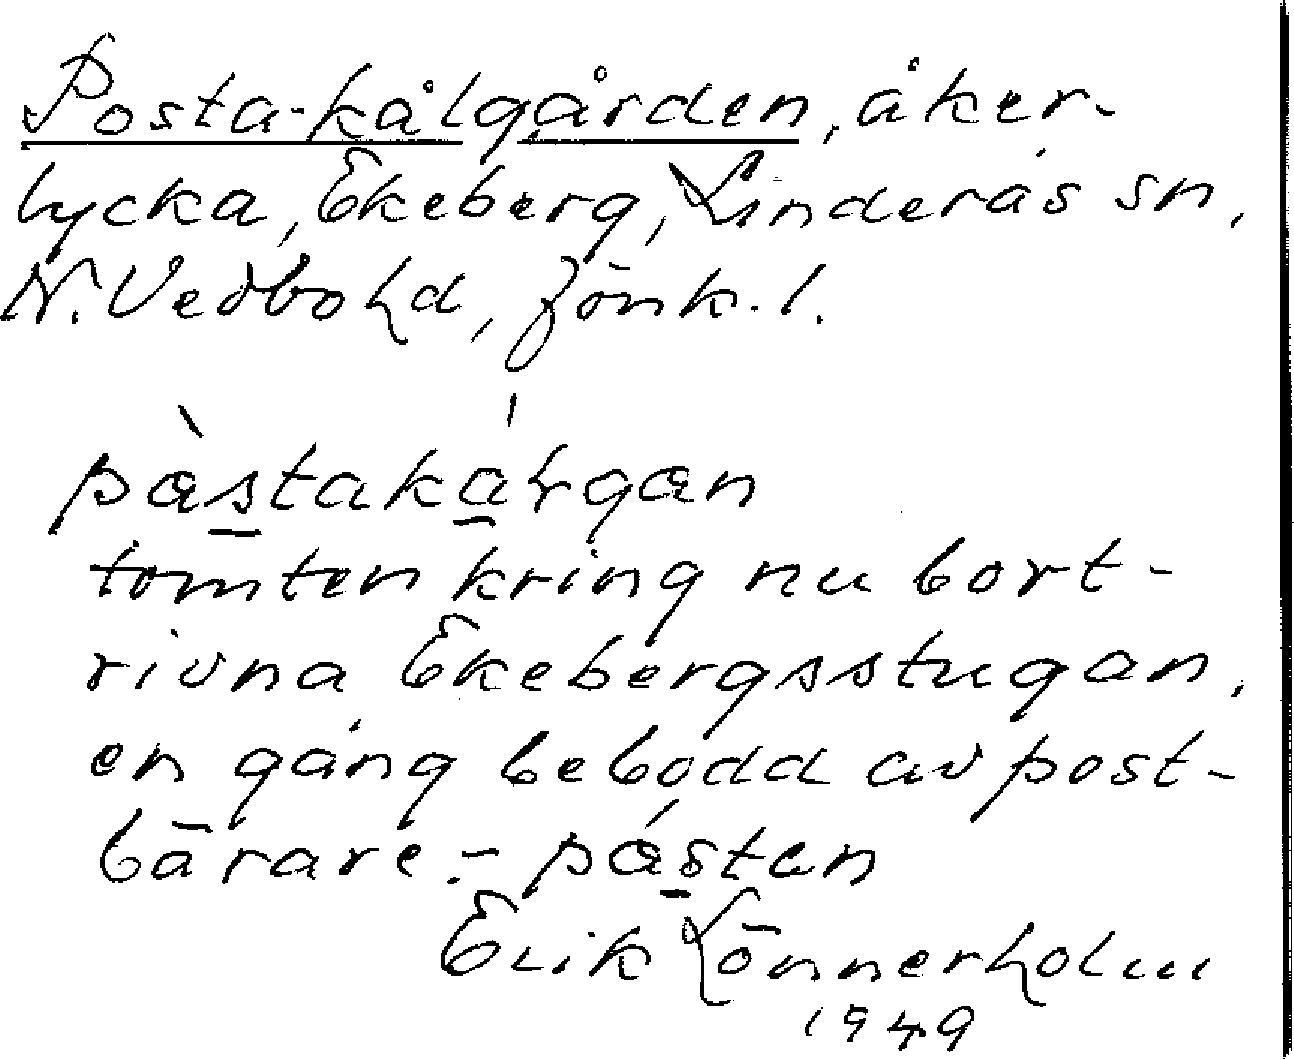 Posta-kålgården, åker-
lycka, Ekeberg, Linderås sn,
N. Vedbohd, Jönk. l.
pàstakálgan
tomten kring nu bort-
rivna Ekebergsstugan,
en gång bebodd av post-
bärare. - pásten
Erik Lönnerholm
1949